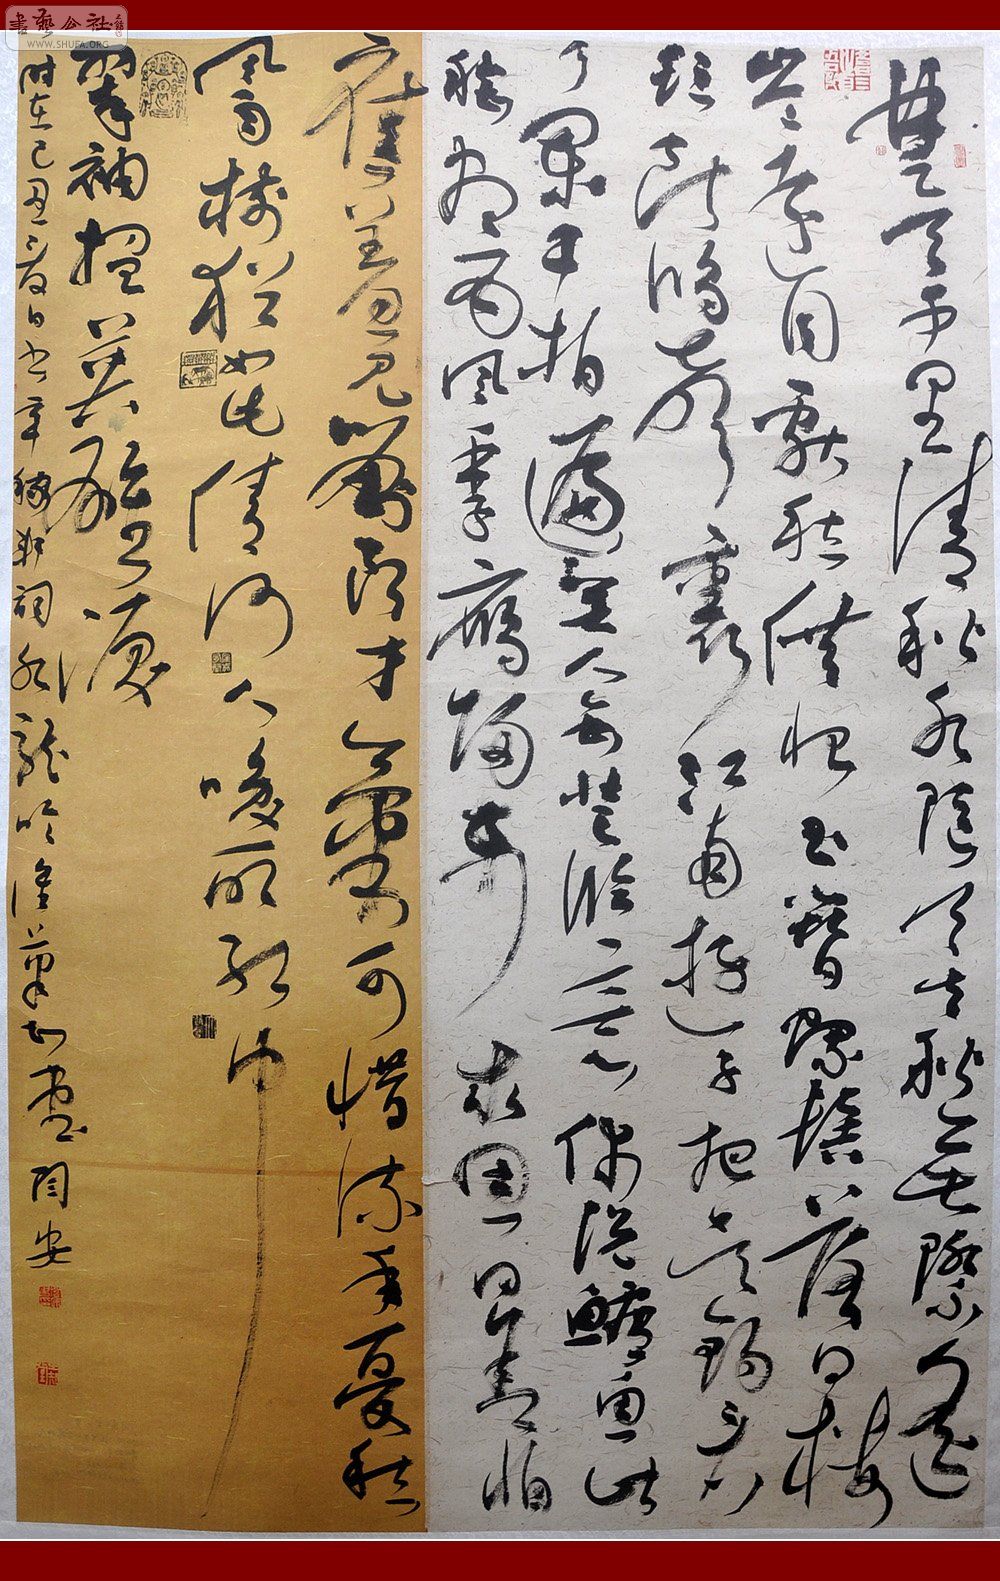 書藝公社
WWW.SHUFA.ORG
楚天千里清秋水隨天去秋無際遥
岑遠目獻愁供恨玉簪螺髻落日樓
頭断鴻聲裏江南游子把吴鈎看
了闌干拍遍無人會登臨意休説鱸魚堪
膾盡西風季鷹歸未求田問舍怕
應羞見劉郎才氣可惜流年憂愁
風雨樹猶如此倩何人唤取紅巾
翠袖揾英雄淚
时在己丑春日书辛稼軒詞水龍吟閆安